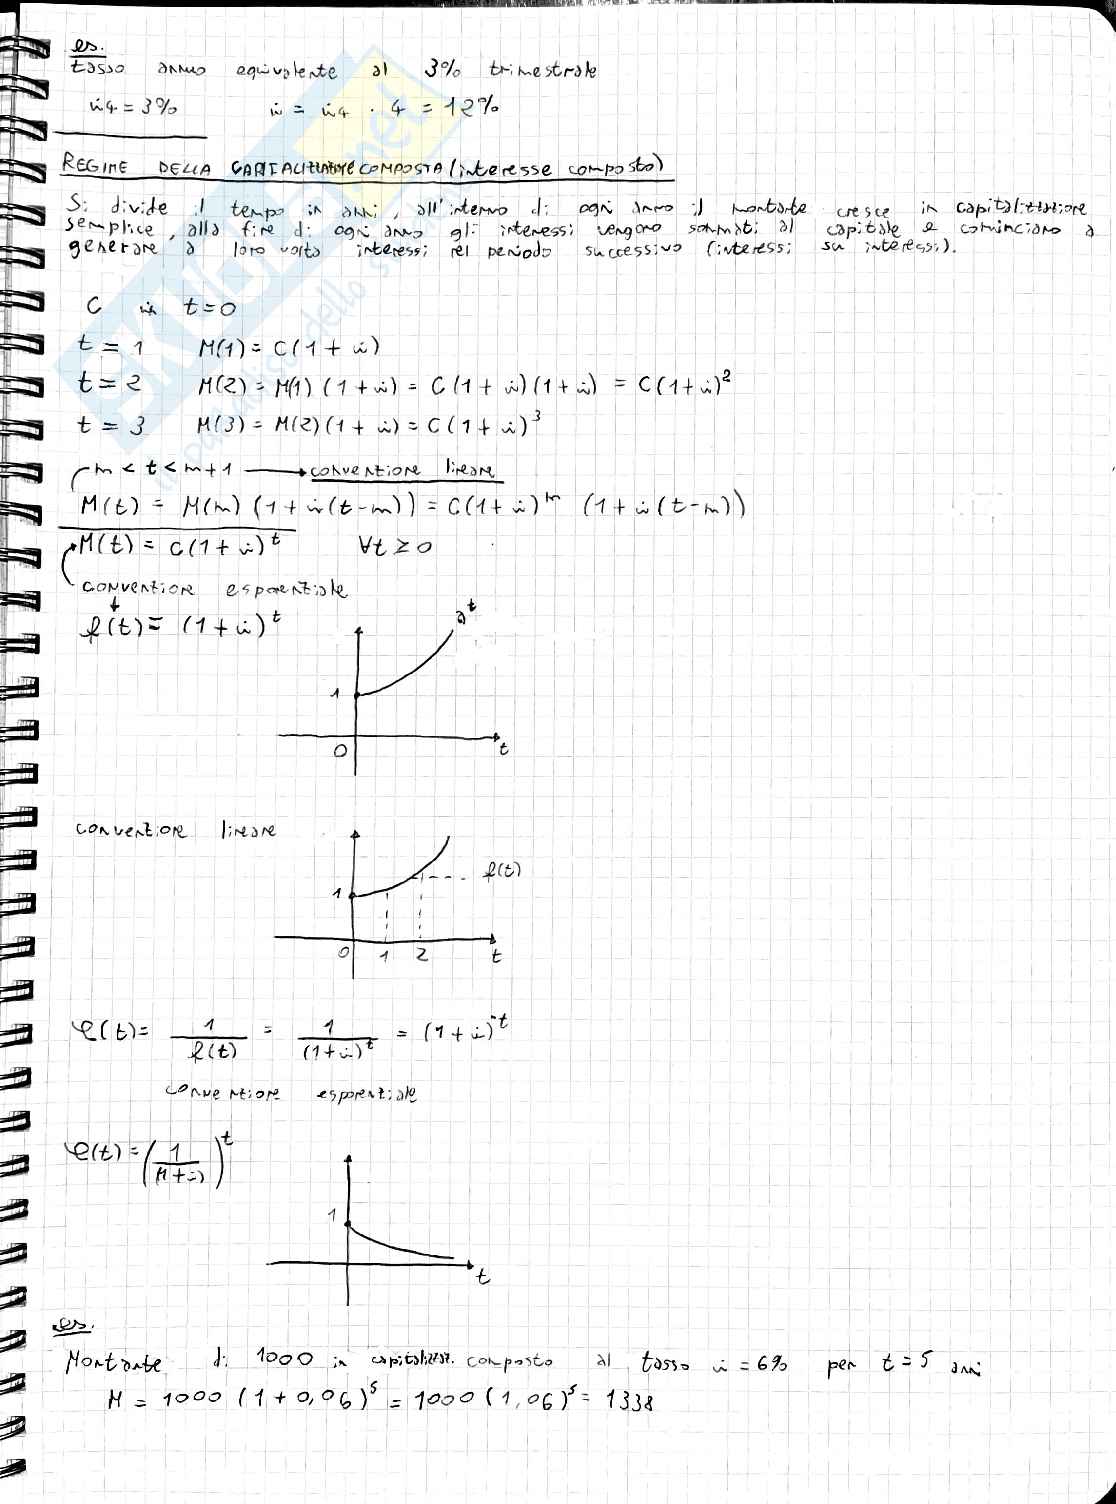 es.
tasso annuo equivalente al 3% trimestrale
i4 = 3% i = i4 · 4 = 12%
REGIME DELLA CAPITALIZZAZIONE COMPOSTA (interesse composto)
Si divide il tempo in anni, all'interno di ogni anno il montante cresce in capitalizzazione
semplice, alla fine di ogni anno gli interessi vengono sommati al capitale e cominciano a
generare a loro volta interessi nel periodo successivo (interessi su interessi).
C in t=0
t = 1 M(1) = C(1 + i)
t = 2 M(2) = M(1) (1 + i) = C (1 + i) (1 + i) = C(1+i)²
t = 3 M(3) = M(2)(1 + i) = C(1 + i)³
n < t < n+1 → convenzione lineare
M(t) = M(n) (1 + i(t-n)) = C(1+i)ⁿ (1 + i(t-n))
M(t) = C(1+i)ᵗ ∀t ≥ 0
convenzione esponenziale
f(t) = (1 + i)ᵗ
aᵗ
1
0 t
convenzione lineare
f(t)
1
0 1 2 t
φ(t) = 1/f(t) = 1/(1+i)ᵗ = (1+i)⁻ᵗ
convenzione esponenziale
φ(t) = (1/(1+i))ᵗ
1
t
es.
Montante di 1000 in capitalizzaz. composto al tasso i = 6% per t = 5 anni
M = 1000 (1 + 0,06)⁵ = 1000 (1,06)⁵ = 1338